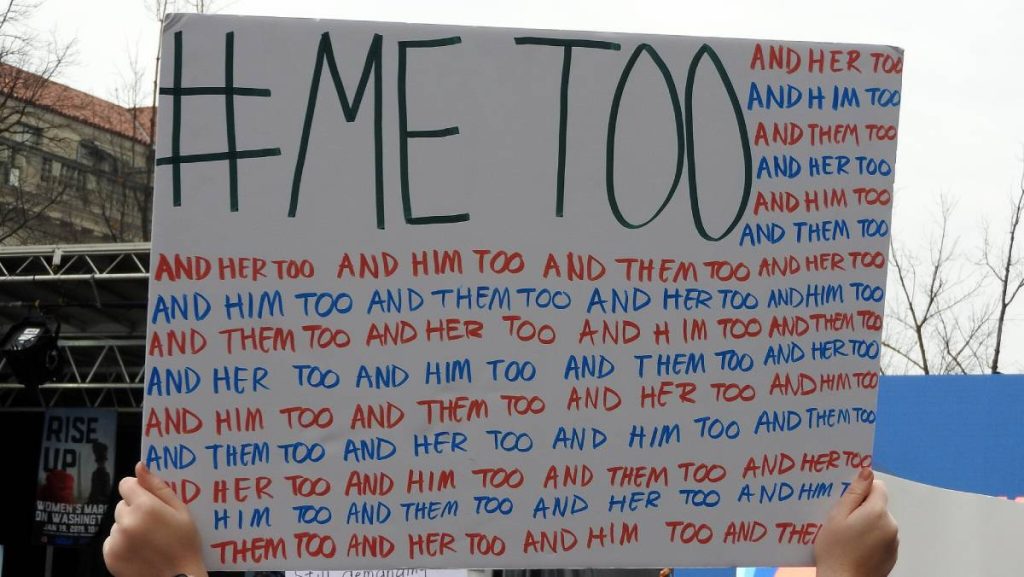 #ME TOO
AND HER TOO
AND HIM TOO
AND THEM TOO
AND HER TOO
AND HIM TOO
AND THEM TOO
AND HER TOO AND HIM TOO AND THEM TOO AND HER TOO
AND HIM TOO AND THEM TOO AND HER TOO AND HIM TOO
AND THEM TOO AND HER TOO AND HIM TOO AND THEM TOO
AND HER TOO AND HIM TOO AND THEM TOO AND HER TOO
AND HIM TOO AND THEM TOO AND HER TOO AND HIM TOO
AND THEM TOO AND HER TOO AND HIM TOO AND THEM TOO
ND HER TOO AND HIM TOO AND THEM TOO AND HER TOO
HIM TOO AND THEM TOO AND HER TOO AND HIM T
THEM TOO AND HER TOO AND HIM TOO AND THE
RISE
UP
WOMEN'S MAR
ON WASHINGT
JAN 19, 2019, 10
still demanding